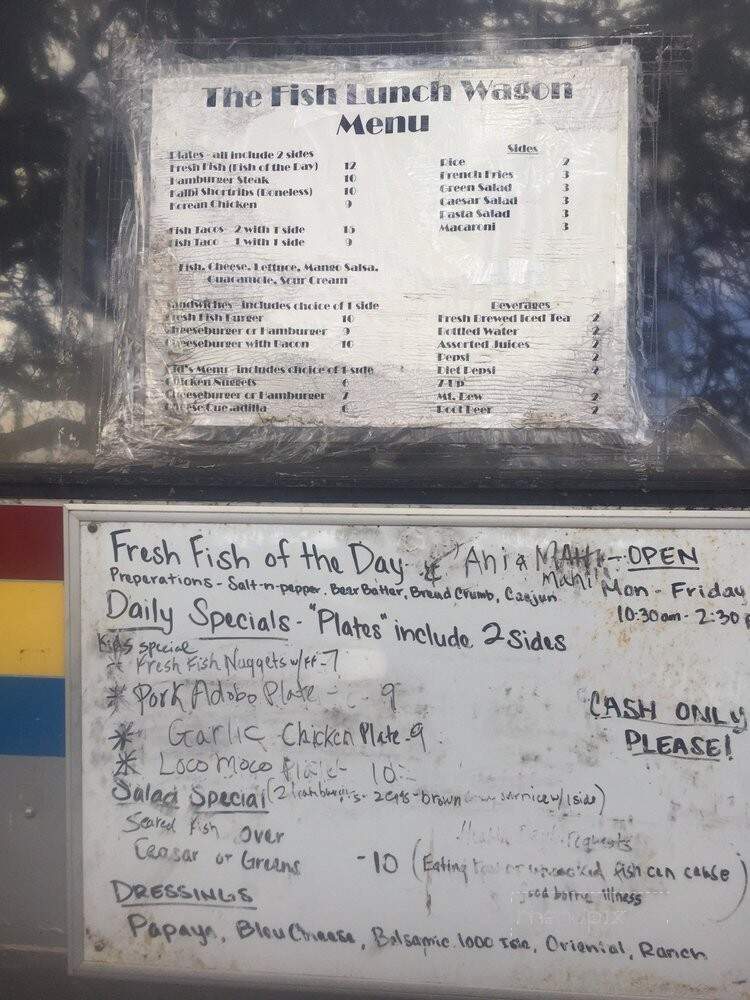 The Fish Lunch Wagon
Menu
Plates - all include 2 sides
Fresh Fish (Fish of the Day) 12
Hamburger Steak 10
Kalbi Shortribs (Boneless) 10
Korean Chicken 9
Fish Tacos - 2 with 1 side 15
Fish Taco - 1 with 1 side 9
Fish, Cheese, Lettuce, Mango Salsa,
Guacamole, Sour Cream
Sandwiches - includes choice of 1 side
Fresh Fish Burger 10
Cheeseburger or Hamburger 9
Cheeseburger with Bacon 10
Kid's Menu - includes choice of 1 side
Chicken Nuggets 6
Cheeseburger or Hamburger 7
Cheese Quesadilla 6
Sides
Rice 2
French Fries 3
Green Salad 3
Caesar Salad 3
Pasta Salad 3
Macaroni 3
Beverages
Fresh Brewed Iced Tea 2
Bottled Water 2
Assorted Juices 2
Pepsi 2
Diet Pepsi 2
7-Up 2
Mt. Dew 2
Root Beer 2
Fresh Fish of the Day - Ahi & MAHI Mahi - OPEN
Preperations - Salt-n-pepper, Bear Batter, Bread Crumb, Caejun
Mon - Friday
10:30am - 2:30
Daily Specials - "Plates" include 2 sides
Kids special
Fresh Fish Nuggets w/ FF - 7
* Pork Adobo Plate - 9
* Garlic Chicken Plate - 9
* Loco Moco Plate - 10
CASH ONLY
PLEASE!
Salad Special (2 hamburgers - 2 eggs - brown w/ 1 side)
Seared Fish over
Ceasar or Greens - 10
requests
(Eating or uncooked fish can cause
food borne illness)
DRESSINGS
Papaya, Bleu Cheese, Balsamic, 1000 Isle, Oriental, Ranch